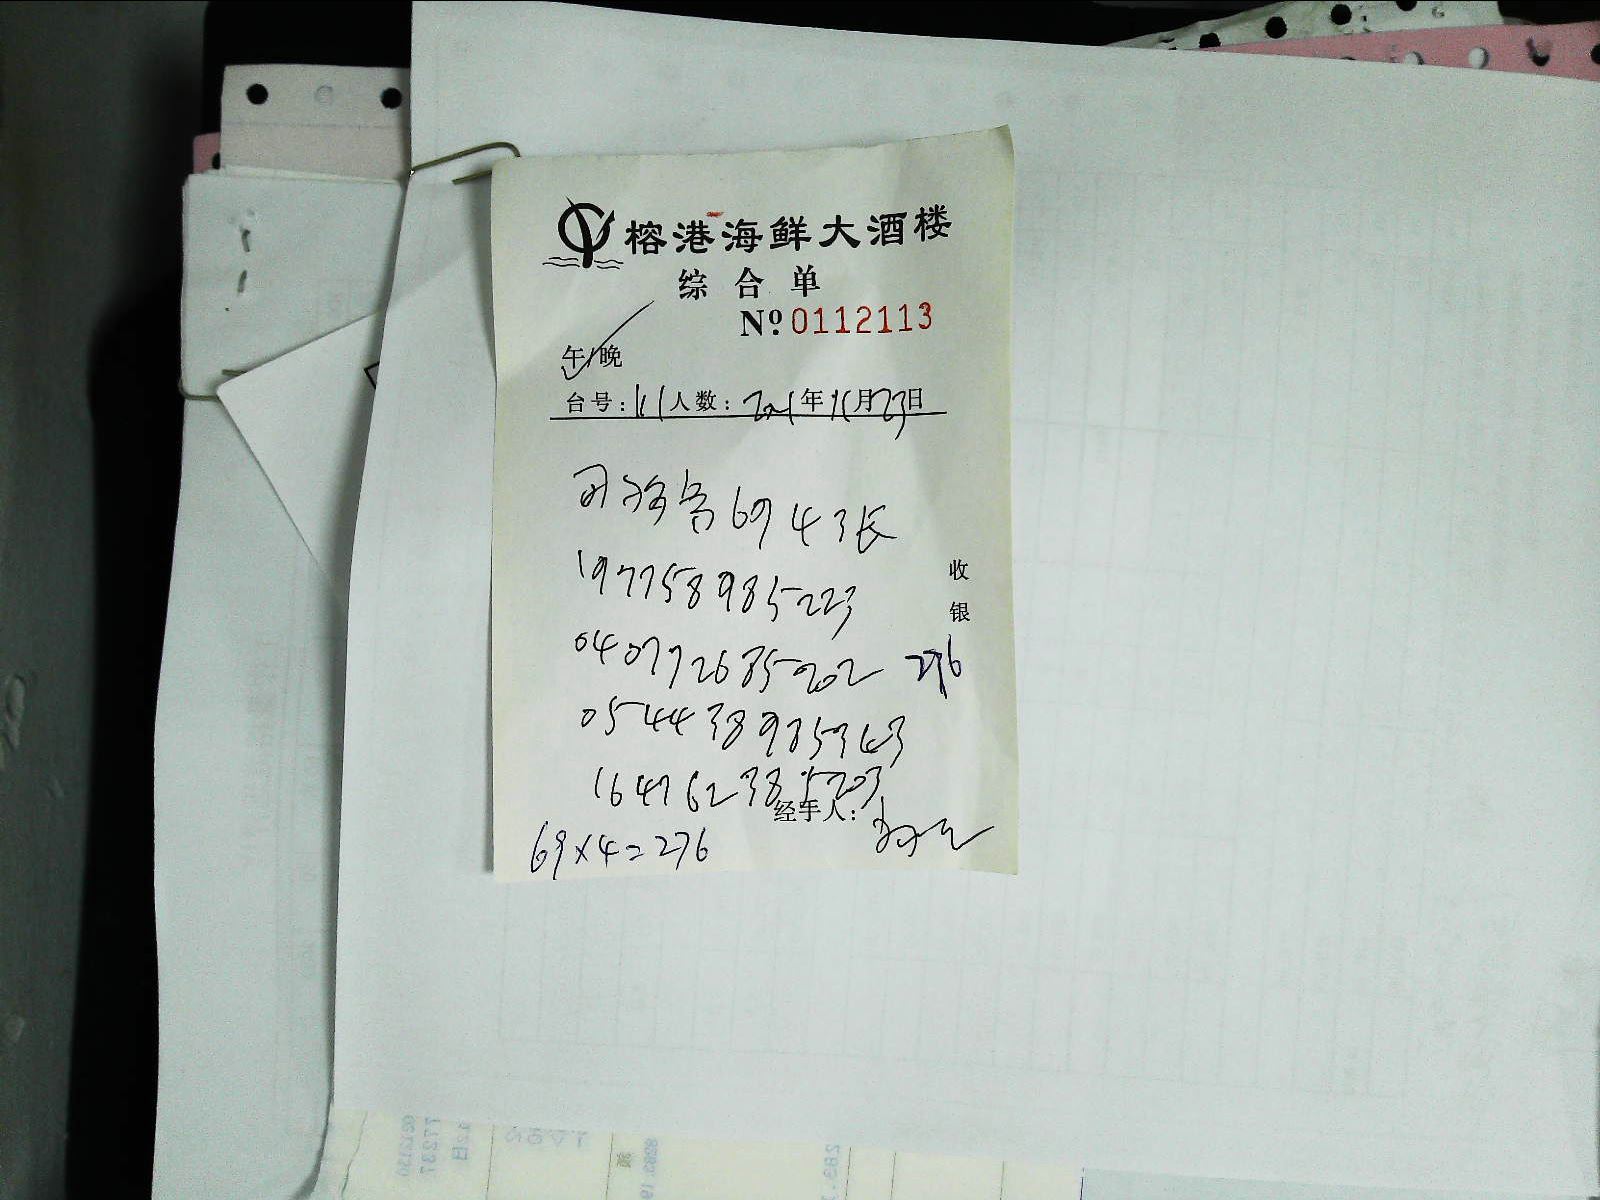 榕港海鲜大酒楼
综合单
Nº 0112113
午/晚
台号: 人数: 2021年11月23日
69 4张
197758985223
收
银
040772685202 276
054438985343
164762385203
经手人:
69×4=276